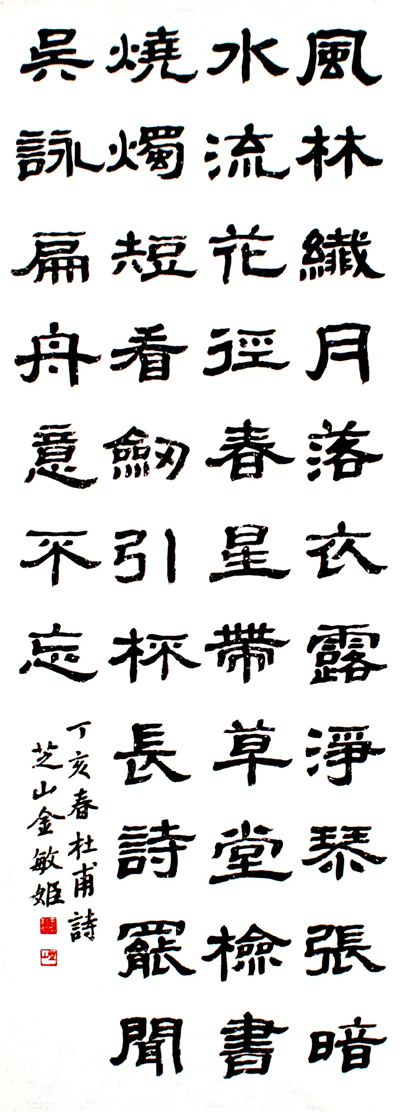 風林纖月落衣露淨琴張暗
水流花徑春星帶草堂檢書
燒燭短看劒引杯長詩罷聞
吳詠扁舟意不忘
丁亥春杜甫詩
芝山金敏姬